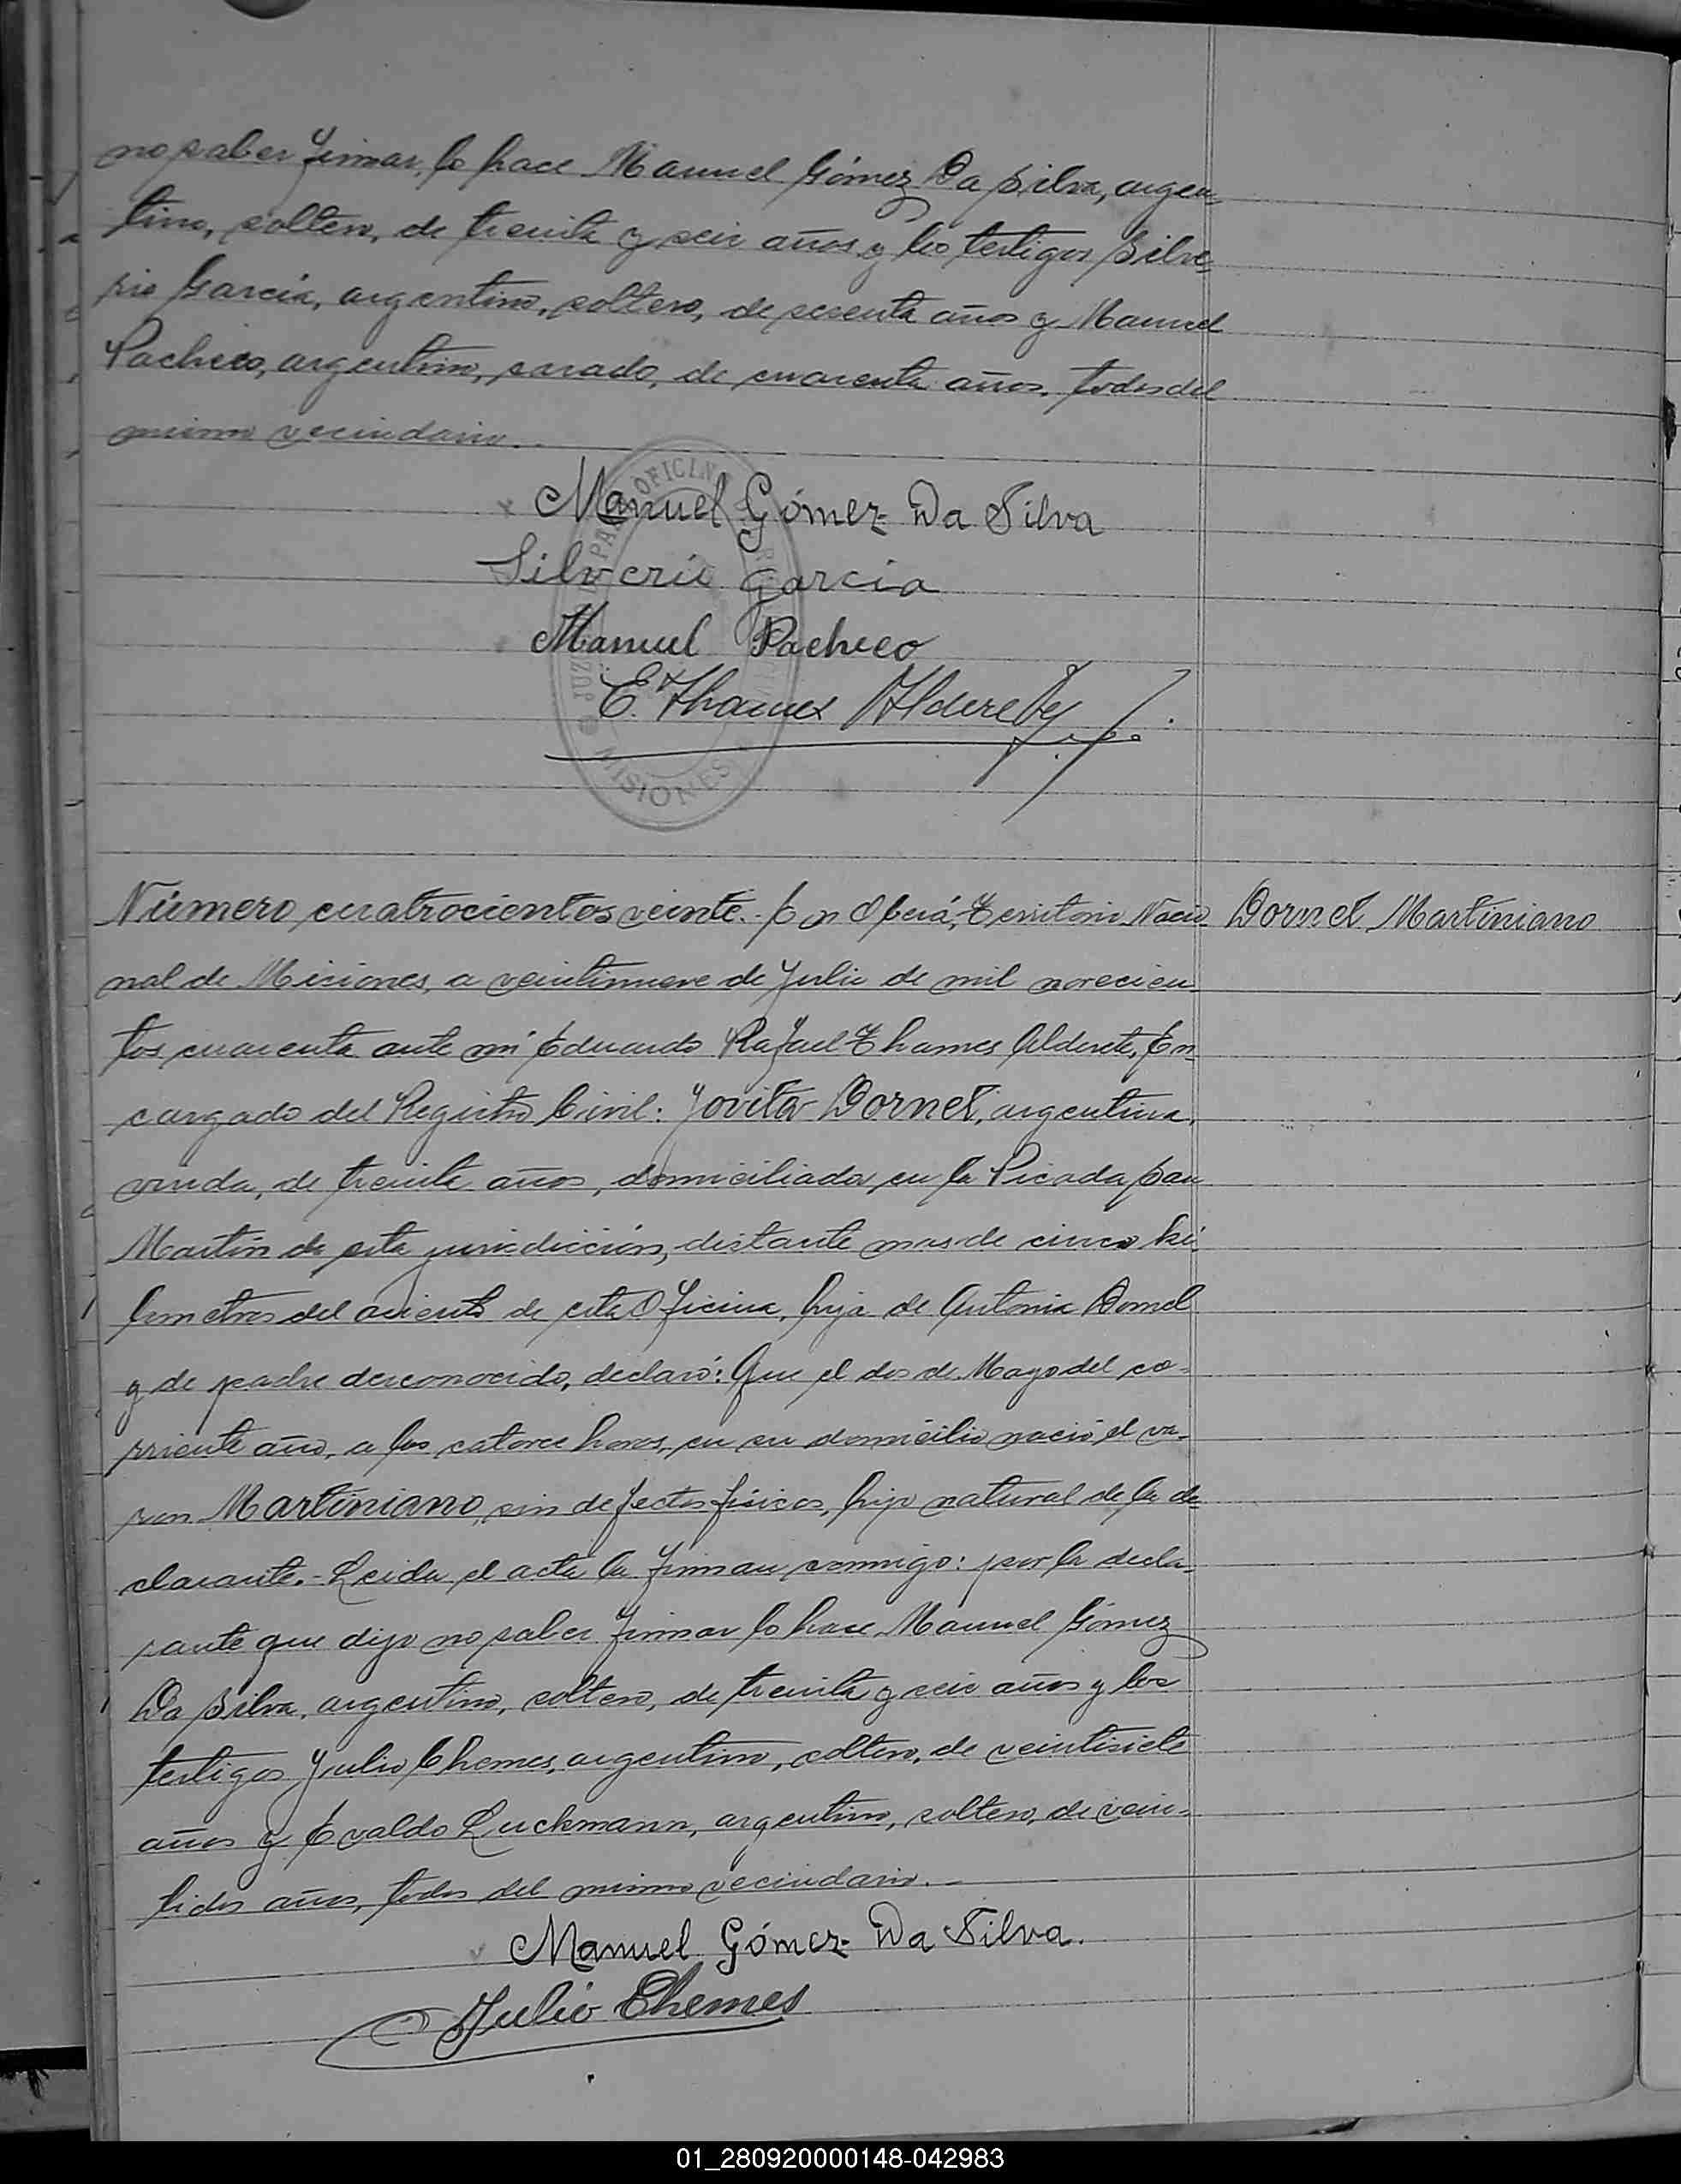 no saber firmar, lo hace Manuel Gómez Da Silva, argen-
tino, soltero, de treinta y seis años y los testigos Silve-
rio García, argentino, soltero, de sesenta años y Manuel
Pacheco, argentino, casado, de cuarenta años, todos del
mismo vecindario.
Manuel Gómez Da Silva
Silverio Garcia
Manuel Pacheco
E. Thames Alderete
JUZ PAZ OFICINA
MISIONES
Número cuatrocientos veinte.- En Oberá, Territorio Nacio-
Dornel Martiniano
nal de Misiones, a veintinueve de Julio de mil novecien-
tos cuarenta ante mí Eduardo Rafael Thames Alderete, En-
cargado del Registro Civil: Jovita Dornel, argentina,
viuda, de treinta años, domiciliada en la Picada San
Martín de esta jurisdicción, distante mas de cinco ki-
lometros del asiento de esta Oficina, hija de Antonia Dornel
y de padre desconocido, declaró: Que el dos de Mayo del co-
rriente año, a las catorce horas, en su domicilio nació el va-
ron Martiniano, sin defectos físicos, hijo natural de la de-
clarante.- Leida el acta la firman conmigo: por la decla-
rante que dijo no saber firmar lo hace Manuel Gómez
Da Silva, argentino, soltero, de treinta y seis años y los
testigos Julio Chemes, argentino, soltero, de veintisiete
años y Evaldo Luckmann, argentino, soltero, de vein-
tidos años, todos del mismo vecindario.-
Manuel Gómez Da Silva.
Julio Chemes
01_280920000148-042983